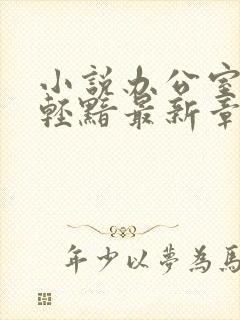 小說办公室
輕黯最新章
年少以夢為馬